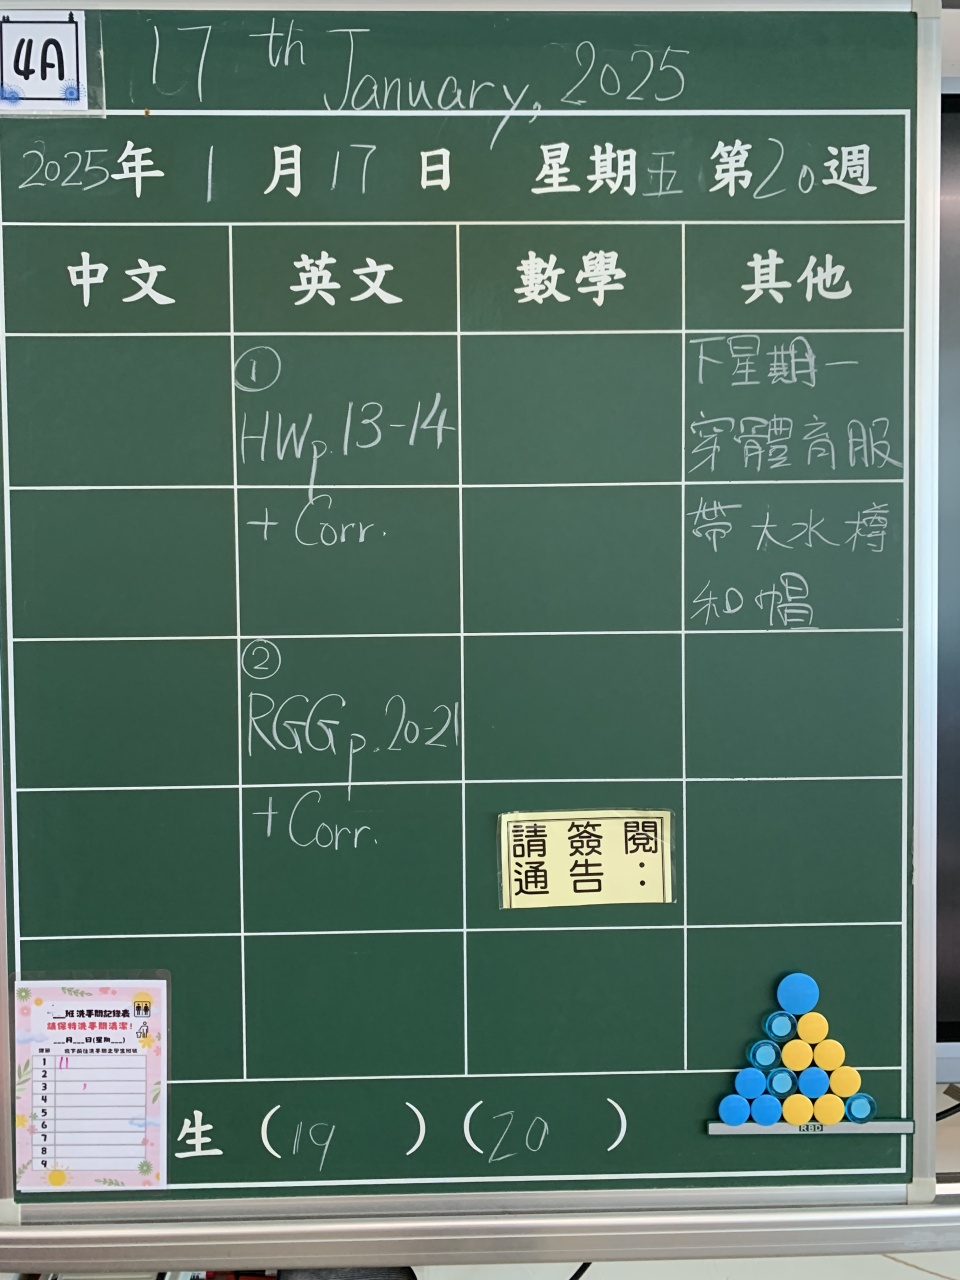 4A
17th January, 2025
2025年1月17日 星期五 第20週
中文 英文 數學 其他
①
HW p.13-14
+ Corr.
②
RGG p.20-21
+ Corr.
下星期一
穿體育服
帶大水樽
和帽
請簽閱
通告：
___班洗手間記錄表
請保持洗手間清潔!
___月___日(星期___)
1 11
2
3
4
5
6
7
8
9
生 (19) (20)
RBD